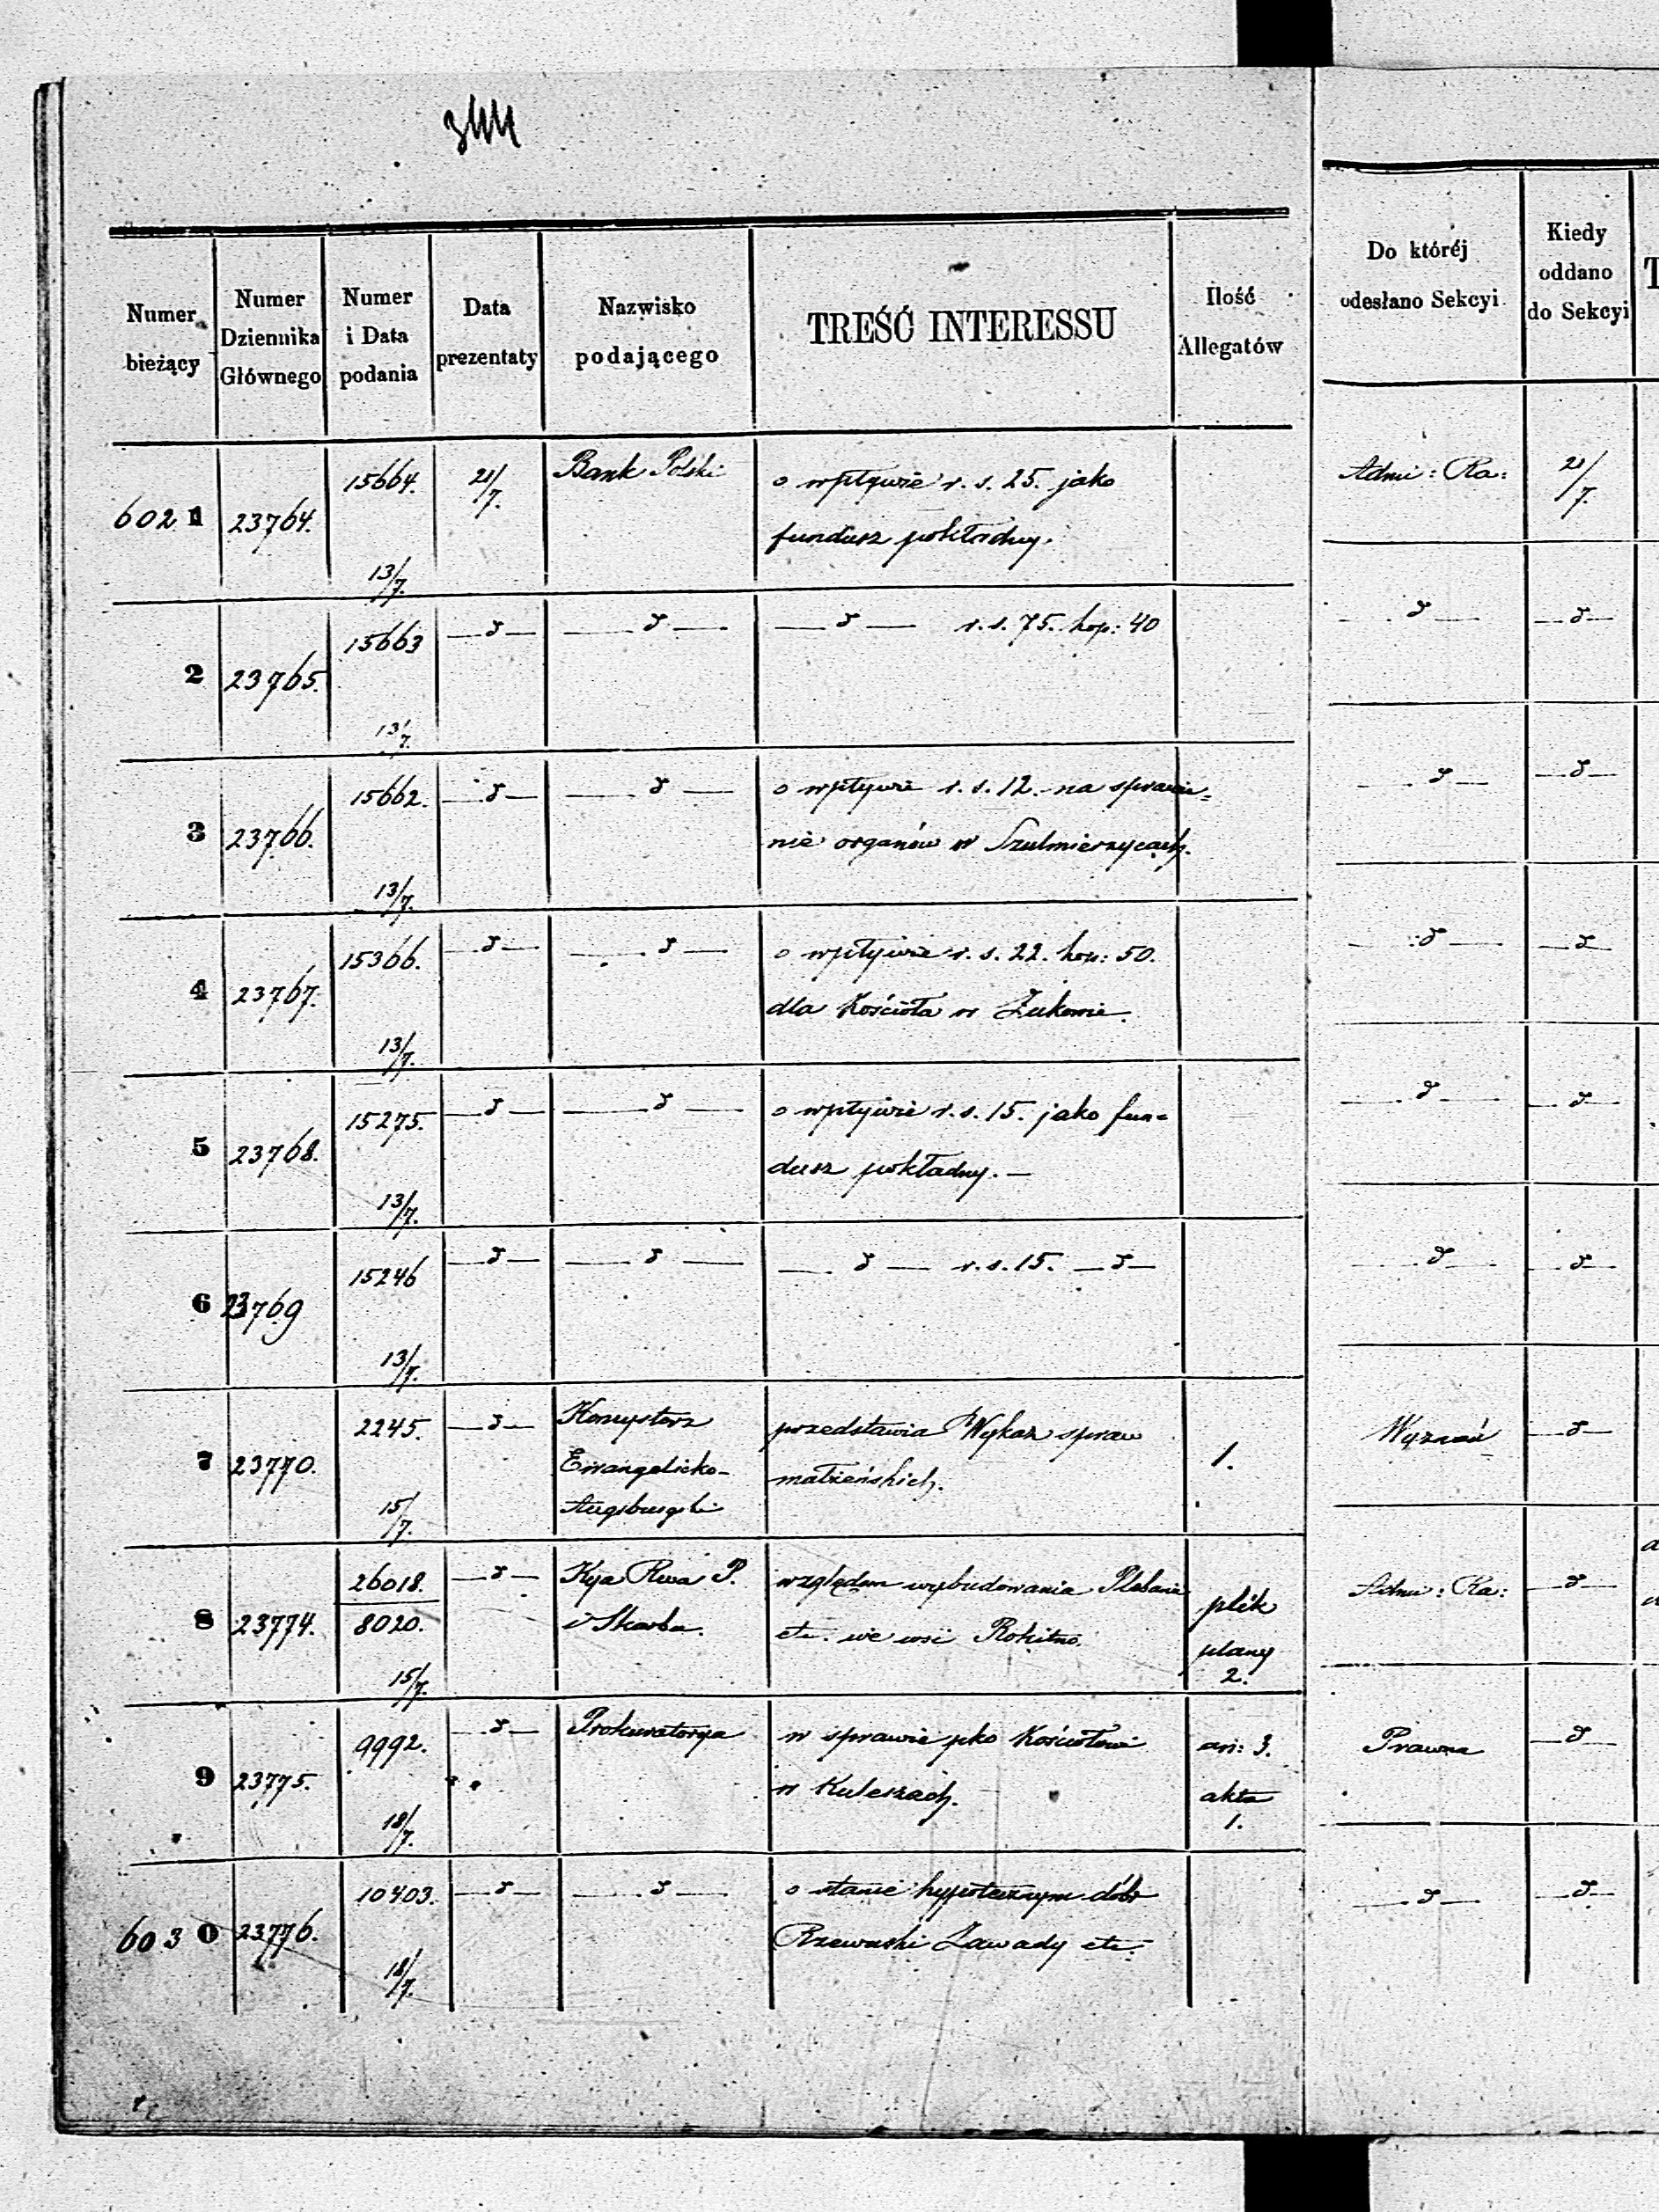 Numer bieżący
Numer Dziennika Głównego
Numer i Data podania
Data prezentaty
Nazwisko podającego
TREŚĆ INTERESSU
Ilość Allegatów
Do któréj odesłano Sekcyi
Kiedy oddano do Sekcyi
6021 23764. 15664. 13/7. 21/7. Bank Polski o wpływie r. s. 25. jako Admi: Ra: 21/7.
fundusz pokładny.
2 23765. 15663 13/7. —d— —d— —d— r. s. 75. kop: 40 —d— —d—
3 23766. 15662. 13/7. —d— —d— o wpływie r. s. 12. na sprawie= —d— —d—
nie organów w Szulmierzycach.
4 23767. 15366. 13/7. —d— —d— o wpływie r. s. 22. kop: 50. —d— —d—
dla Kościoła w Żukowie.
5 23768. 15275. 13/7. —d— —d— o wpływie r. s. 15. jako fun= —d— —d—
dusz pokładny. —
6 23769 15246 13/7. —d— —d— —d— r. s. 15. —d— —d— —d—
7 23770. 2245. 15/7. —d— Konsystorz przedstawia Wykaz spraw 1. Wyznań —d—
Ewangelicko- małżeńskich.
Augsburgski
8 23774. 26018. 8020. 15/7. —d— Kya Rwa P. względem wybudowania Plebanii plik Admi: Ra: —d—
i Skarbu. etc. we wsi Rokitno. plany
2.
9 23775. 9992. 18/7. —d— Prokuratorya w sprawie pko Kościołowi an: 3. Prawna —d—
w Kuleszach. akta
1.
6030 23776. 10403. 18/7. —d— —d— o stanie hypotecznym dóbr —d— —d—
Zawady etc.